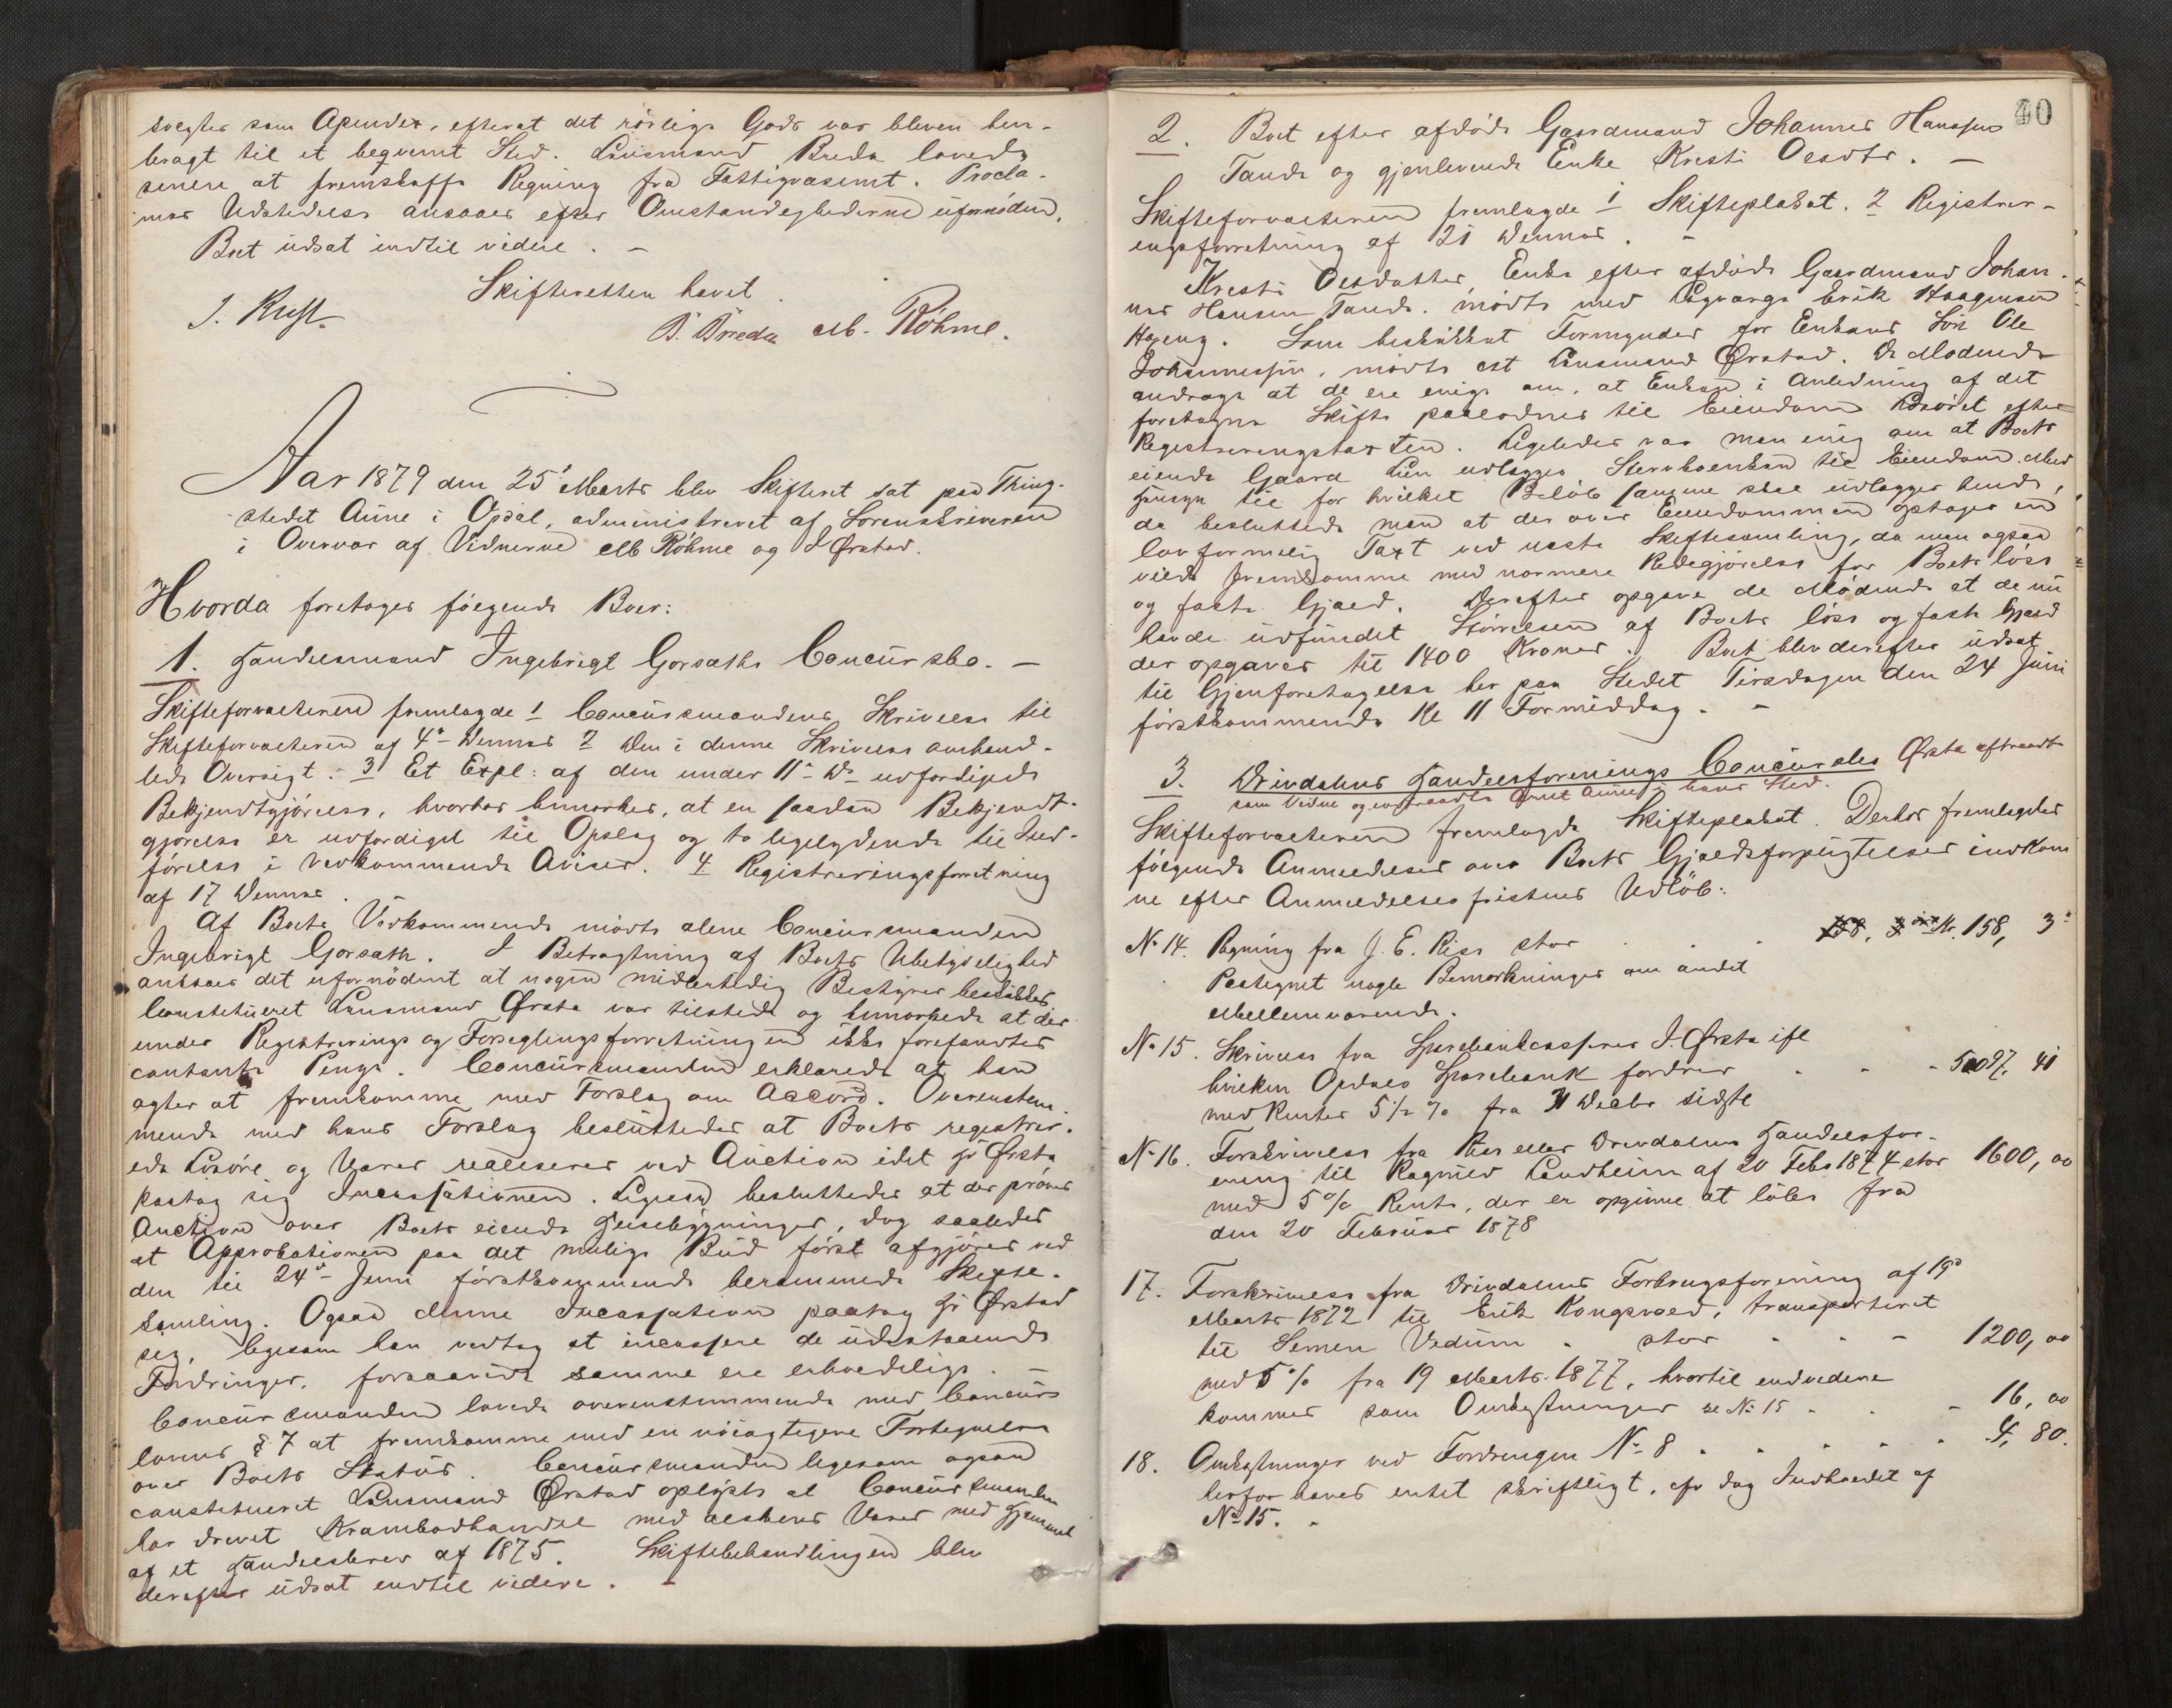 solgtes som Apendix, efterat det rörlige Gods var bleven hen-
bragt til et beqvemt Sted. Lensmand Breda lovede
senere at fremskaffe Regning fra Fattigvæsenet. Procla-
mas Udstedelse ansaaes efter Omstændighederne ufornöden.
Boet udsat indtil videre. –
Skifteretten hævet.
J. Rust.
B. Breda Mb. Röhme.
Aar 1879 den 25' Marts blev Skifteret sat paa Thing-
stedet Aune i Opdal, administreret af Sorenskriveren
i Overvær af Vidnerne Mb Röhme og J Ørstad.
Hvorda foretoges fölgende Boer:
1. Handelsmand Ingebrigt Gorsæths Concursbo. –
Skifteforvalteren fremlagde 1 Concursmandens Skrivelse til
Skifteforvalteren af 4de dennes 2 Den i denne Skrivelse omhand-
lede Oversigt. 3 Et Expl: af den under 11te Ds udfærdigede
Bekjendtgjörelse, hvorhos bemærkes, at en saadan Bekjendt-
gjörelse er udfærdiget til Opslag og to ligelydende til Ind-
förelse i vedkommende Aviser. 4 Registreringsforretning
af 17 dennes.
Af Boets Vedkommende mödte alene Concursmanden
Ingebrigt Gorsæth. I Betragtning af Boets Ubetydelighed
ansaaes det ufornödent at nogen midlertidig Bestyrer beskikkes.
Constitueret Lensmand Ørsta var tilstede og bemærkede at der
under Registrerings og Forseglingsforretningen ikke forefandtes
contante Penge. Concursmanden erklærede at han
agter at fremkomme med Forslag om Accord. Overenstem-
mende med hans Forslag besluttedes at Boets registrer-
ede Lösöre og Varer realiseres ved Auction idet Hr Ørsta
paatog sig Incassationen. Ligesaa besluttedes at der pröves
Auction over Boets eiende Huusebygninger, dog saaledes
at Approbationen paa det mulige Bud först afgjöres ved
den til 24de Juni förstkommende berammede Skifte-
samling. Ogsaa denne Incassation paatog Hr Ørstad
sig, ligesom han vedtog at incassere de udestaaende
Fordringer, forsaavidt samme ere erholdelige. –
Concursmanden lovede overensstemmende med Concurs
lovens § 7 at fremkomme med en nöiagtigere Fortegnelse
over Boets Status. Concursmanden ligesom ogsaa
constitueret Lensmand Ørstad oplyste at Concursmanden
har drevet Krambodhandel med alskens Varer med Hjemmel
af et Handelsbrev af 1875. Skiftebehandlingen blev
derefter udsat indtil videre. –
40
2. Boet efter afdöde Gaardmand Johannes Hansen
Tande og gjenlevende Enke Kresti Olsdtr. –
Skifteforvalteren fremlagde 1 Skifteplakat. 2 Registrer-
ingsforretning af 21 dennes. –
Kresti Olsdatter, Enke efter afdöde Gaardmand Johan-
nes Hansen Tande. mödte med Laugværge Erik Haagensen
Hageng. Som beskikket Formynder for Enkens Sön Ole
Johannessen, mödte cst Lensmand Ørstad. De Mödende
androge at de ere enige om, at Enken i Anledning af det
foretagne Skifte paalodnes til Eiendom Lösöret efter
Registreringstaxten. Ligeledes var man enig om at Boets
eiende Gaard Lien udlægges Stervboenken til Eiendom. Med
Hensyn til for hvilket Belöb samme skal udlægges hende,
da besluttede man at der over Eiendommen optages en
lovformelig Taxt ved næste Skiftesamling, da man ogsaa
vilde fremkomme med nærmere Redegjörelse for Boets löse
og faste Gjæld. Derefter opgave de Mödende at de nu
havde udfundet Störrelsen af Boets löse og faste Gjæld
der opgaves til 1400 Kroner. Boet blev derefter udsat
til Gjenforetagelse her paa Stedet Tirsdagen den 24 Juni
förstkommende Kl 11 Formiddag. –
3. Drivdalens Handelsforenings Concursbo Ørsta aftraadte
som Vidne og indtraadte Arnt Aune i hans Sted.
Skifteforvalteren fremlagde Skifteplakat. Derhos fremlagdes
fölgende Anmeldelser over Boets Gjældsforpligtelser indkom
ne efter Anmeldelsesfristens Udlöb:
No 14. Regning fra J. E. Riis stor . . . Kr. 158, 3
Paategnet nogle Bemærkninger om andet
Mellemværende.
No 15. Skrivelse fra Sparebankcasserer J. Ørsta ifl
hvilken Opdals Sparebank fordrer . . . 5007, 41
med Renter 5 1/2 % fra 31 Decbr sidste
No 16. Forskrivelse fra Riis eller Drivdalens Handelsfor-
ening til Ragnild Landheim af 20 Febr 1874 stor 1600, 00
med 5 % Rente, der er opgivne at löbe fra
den 20 Februar 1878
17. Forskrivelse fra Drivdalens Forbrugsforening af 19de
Marts 1872 til Erik Kongsvold, transporteret
til Simen Vedum . stor . . . 1200, 00
med 5 % fra 19 Marts 1877, hvortil endvidere
kommer som Omkostninger se No 15 . . . 16, 00
18. Omkostninger ved Fordringen No 8 . . . . . 4, 80.
herfor haves intet skriftligt, cfr dog Indholdet af
No 15. .